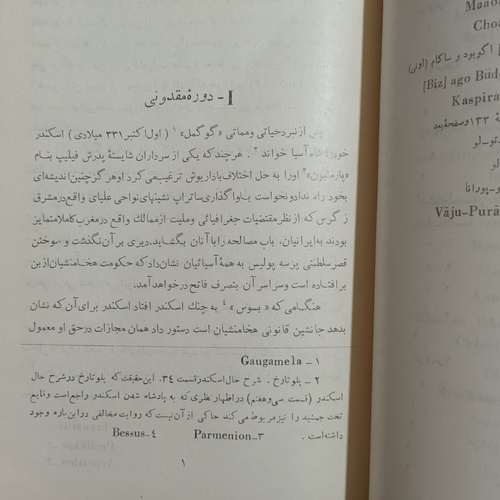 I - دوره مقدونی
پس از نبرد حیاتی و مماتی «گوگمل» ۱ ( اول اکتبر ۳۳۱ میلادی ) اسکندر
خود را شاه آسیا خواند ۲. هرچند که یکی از سرداران شایستهٔ پدرش فیلیپ بنام
«پارمنیون» ۳ اورا به حل اختلاف باداریوش ترغیب می کرد او هرگز چنین اندیشه ای
بخود راه نداد و نخواست با واگذاری ساتراپ نشینهای نواحی علیای واقع در مشرق
زاگرس که از نظر مقتضیات جغرافیائی و ملیت از ممالک واقع در مغرب کاملا متمایز
بودند به ایرانیان، باب مصالحه را با آنان بگشاید. دیری بر آن نگذشت و سوختن
قصر سلطنتی پرسه پولیس به همهٔ آسیائیان نشان داد که حکومت هخامنشیان از بن
بر افتاده است و سراسر آن بتصرف فاتح درخواهد آمد.
هنگامی که «بسوس» ۴ به چنگ اسکندر افتاد اسکندر برای آن که نشان
بدهد جانشین قانونی هخامنشیان است دستور داد همان مجازات در حق او معمول
۱ – Gaugamela
۲ – پلوتارخ . شرح حال اسکندر قسمت ۳۴. این حقیقت که پلوتارخ در شرح حال
اسکندر (قسمت سی و هفتم) در اظهار نظری که به پادشاه شدن اسکندر راجع است وقایع
تخت جمشید را نیز مربوط می کند حاکی از آن نیست که روایت مخالفی در این باره وجود
داشته است . ۳– Parmenion ۴– Bessus
۱
Maao
Choa
اکوبود و ساکام (اوتی)
[Biz] ago Bud
Kaspira
۱۳۳ وصفحهٔ بعد
تو-لو
لو
و-پورانا
Vāju-Purā